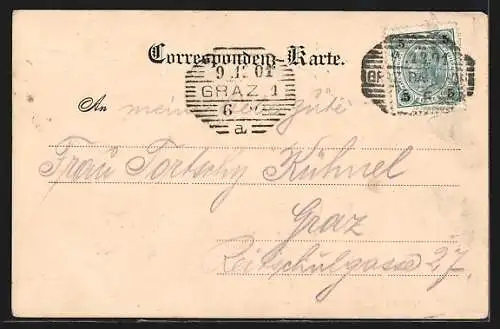 Correspondenz-Karte.
9.12.01
GRAZ 1
6
a
5 5
5 5
12.01
An meine gute
Frau Tortschy Kühnel
Graz
Reitschulgasse 27.